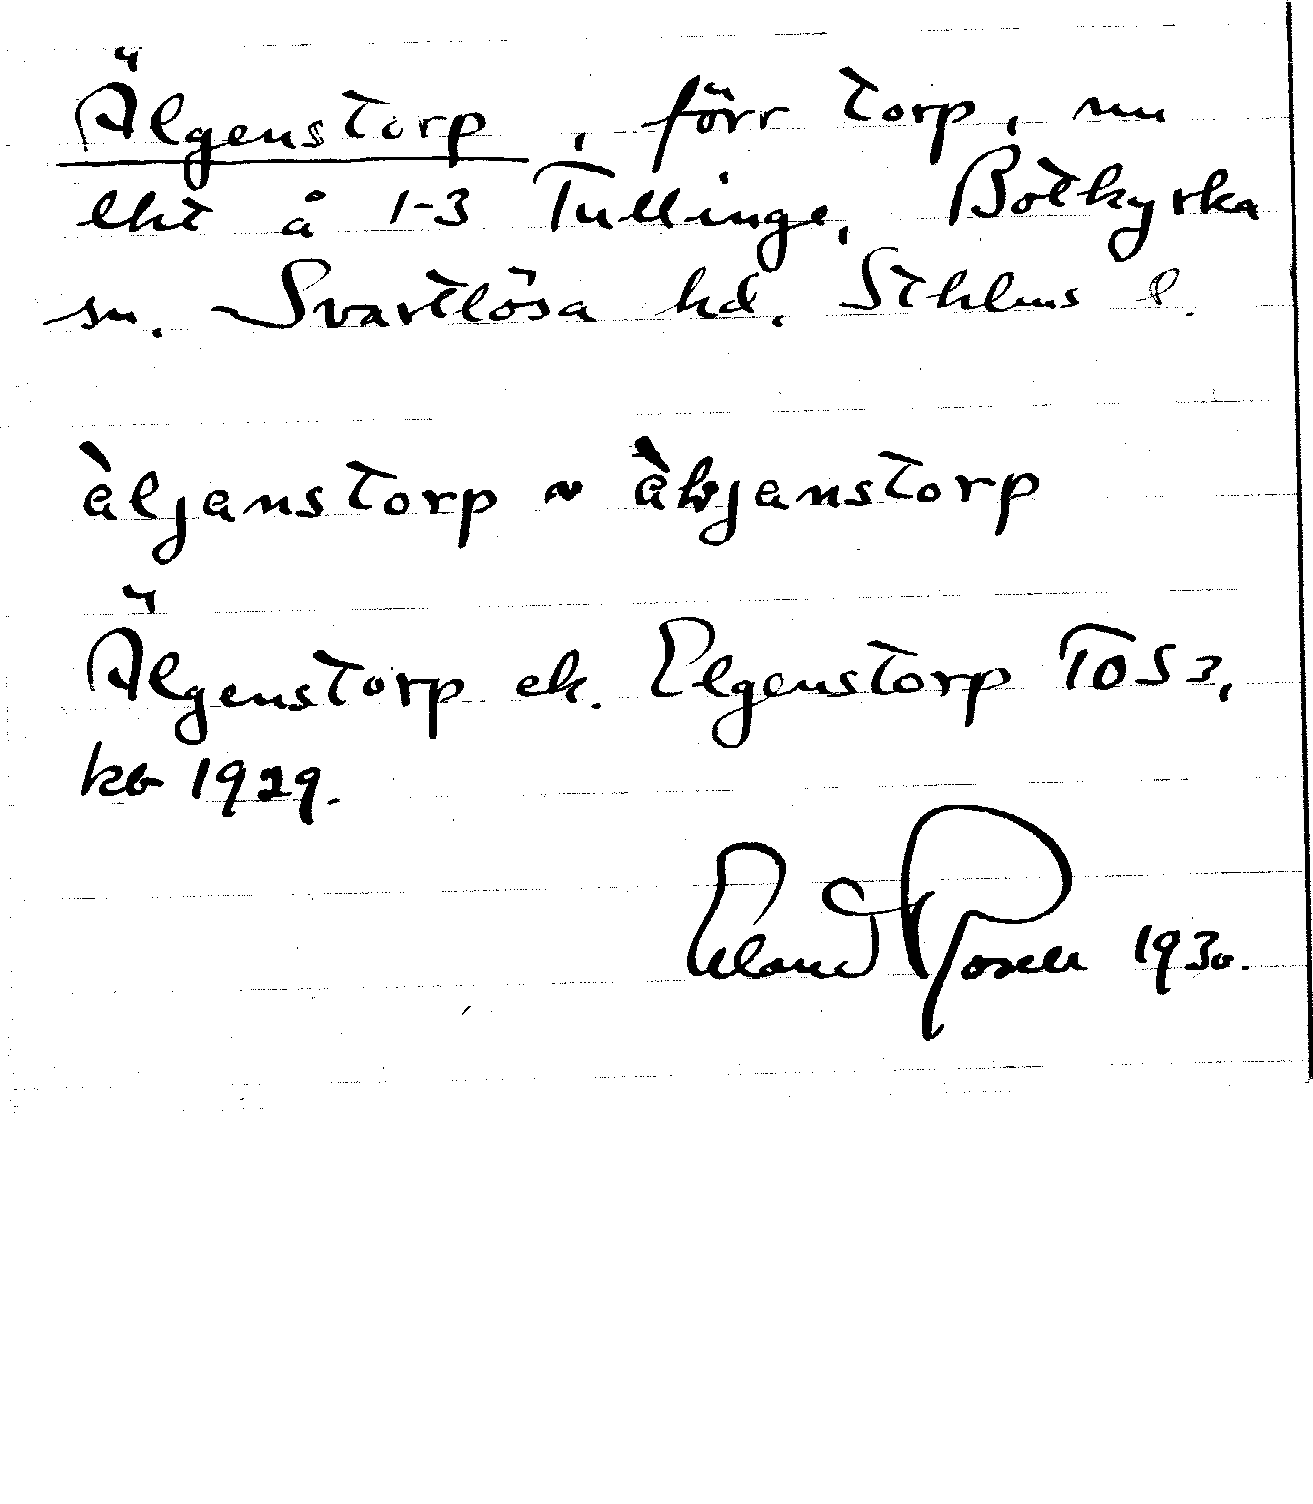 Älgenstorp, förr torp, nu
lht å 1-3 Tullinge, Botkyrka
sn. Svartlösa hd. Sthlms l.
àljanstorp ~ àhjanstorp
Älgenstorp ek. Elgenstorp TOS 3,
kb 1929.
Erland Rosell 1930.